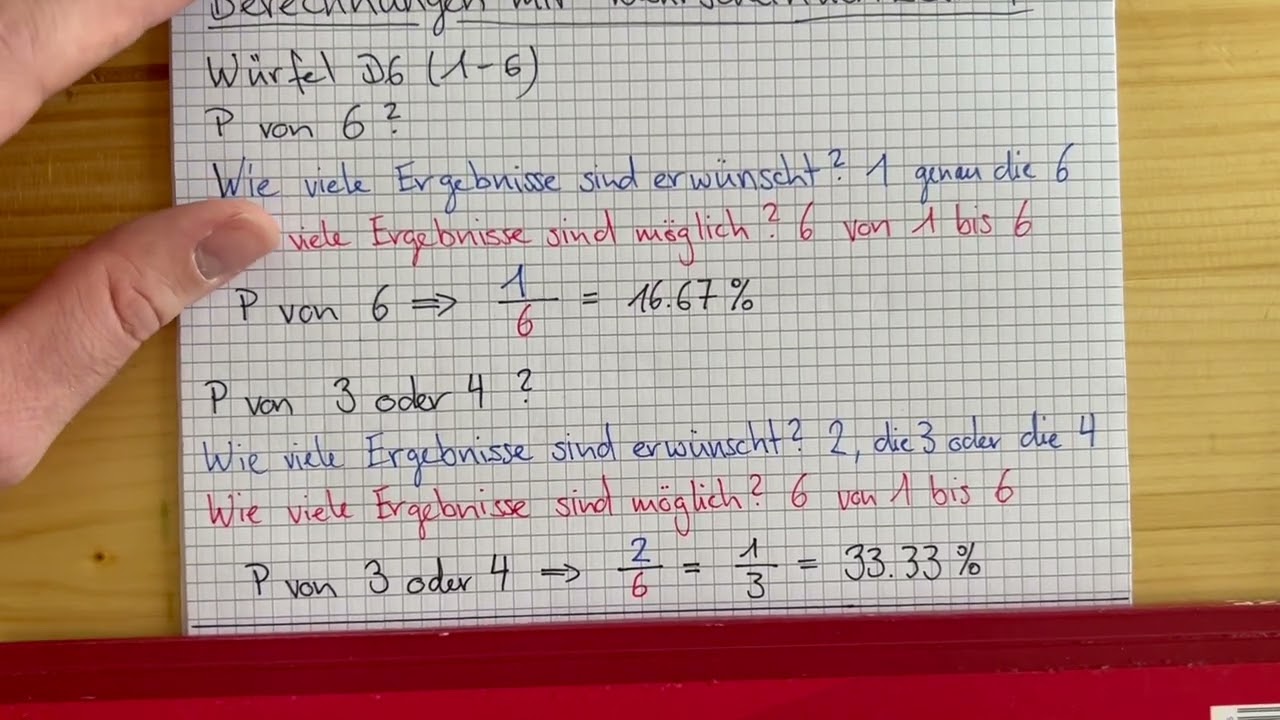 Berechnungen mit
Würfel D6 (1-6)
P von 6?
Wie viele Ergebnisse sind erwünscht? 1 genau die 6
viele Ergebnisse sind möglich? 6 von 1 bis 6
P von 6 ⇒ 1/6 = 16.67%
P von 3 oder 4 ?
Wie viele Ergebnisse sind erwünscht? 2, die 3 oder die 4
Wie viele Ergebnisse sind möglich? 6 von 1 bis 6
P von 3 oder 4 ⇒ 2/6 = 1/3 = 33.33%